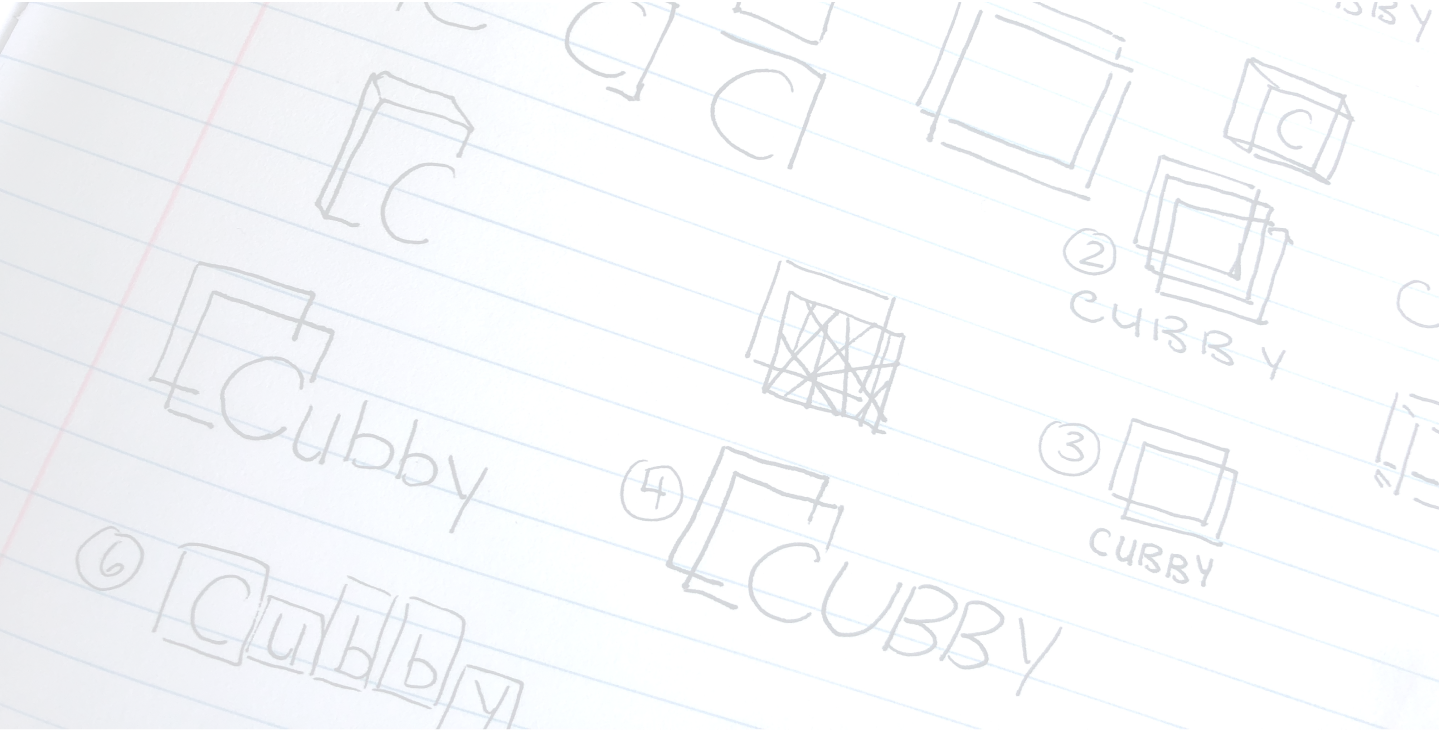 BBY
C
C
C
C
2
CUBBY
Cubby
3
CUBBY
4
CUBBY
6
Cubby